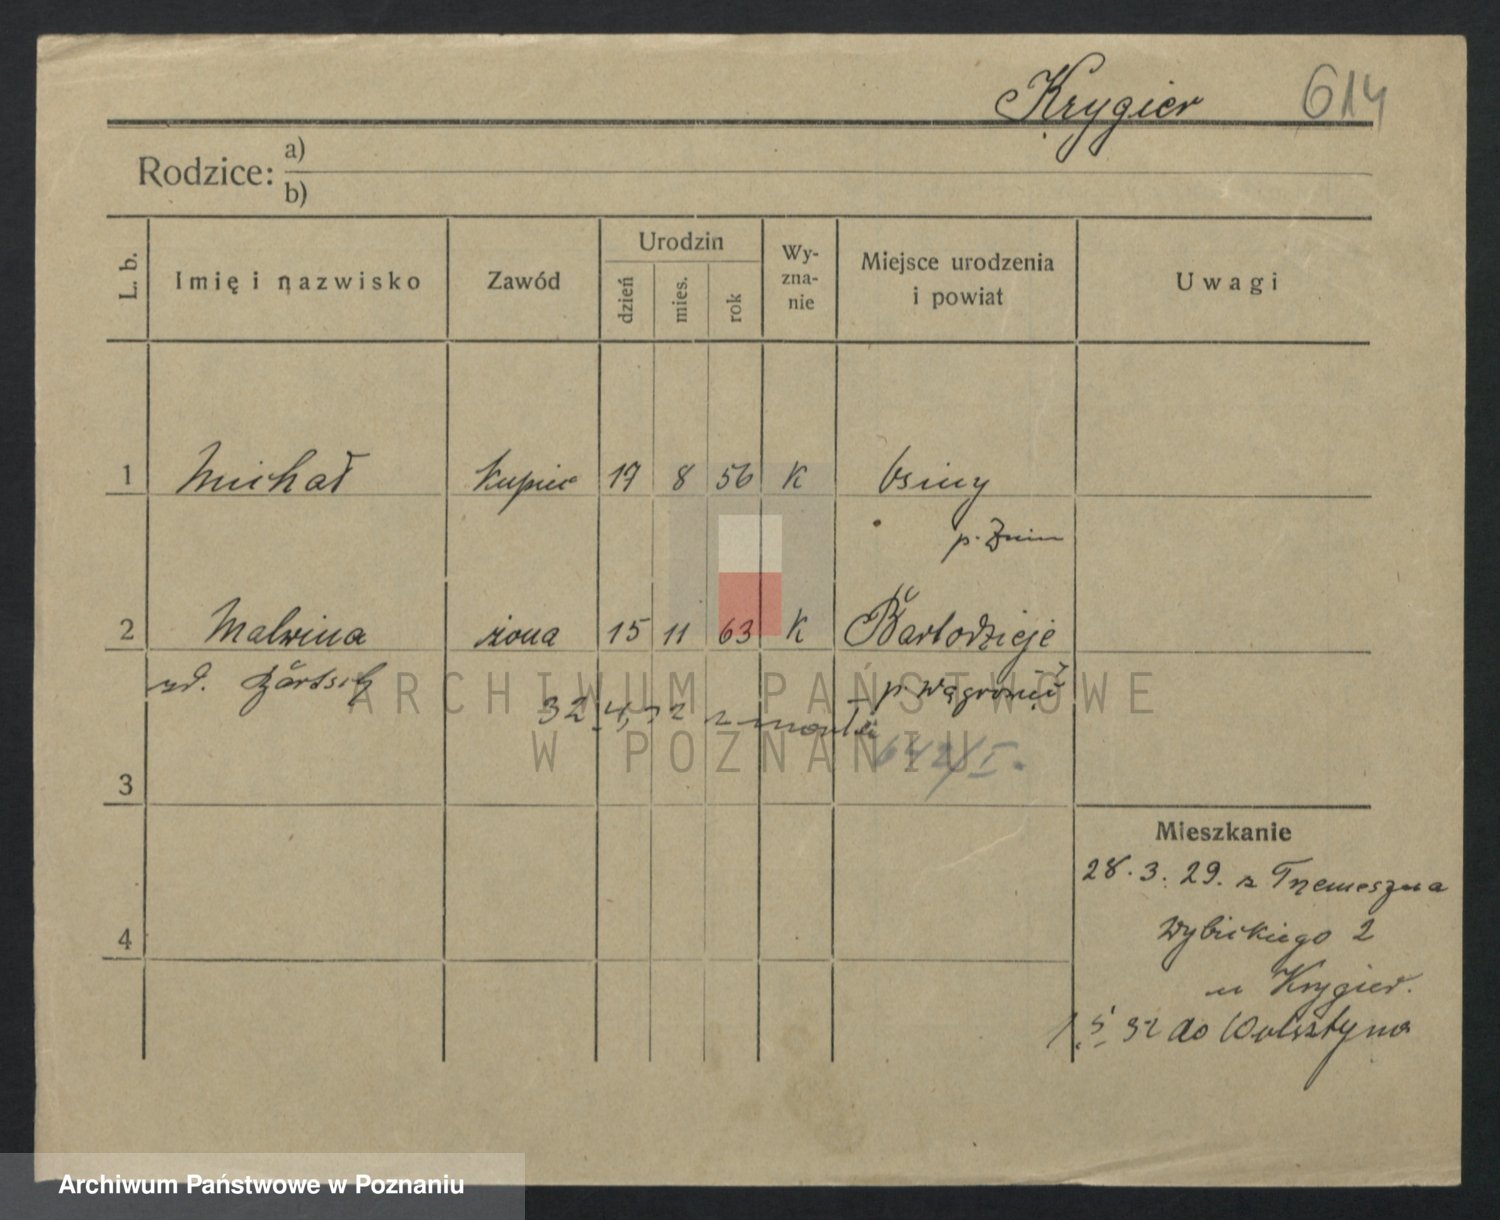 Krygier 614
Rodzice: a)
b)
L. b.
Imię i nazwisko
Zawód
Urodzin
dzień
mies.
rok
Wy-
zna-
nie
Miejsce urodzenia
i powiat
Uwagi
1 Michał kupiec 17 8 56 K Osiny
p. Żnin
2 Malwina żona 15 11 63 K Bartodzieje
zd. Bärtsch
p. Wągrowiec
32 4, 32
642/I.
3
Mieszkanie
28.3.29. z Trzemeszna
Wybickiego 2
4
u Krygier.
1.5 32 do Wolsztyna
ARCHIWUM PAŃSTWOWE
W POZNANIU
Archiwum Państwowe w Poznaniu